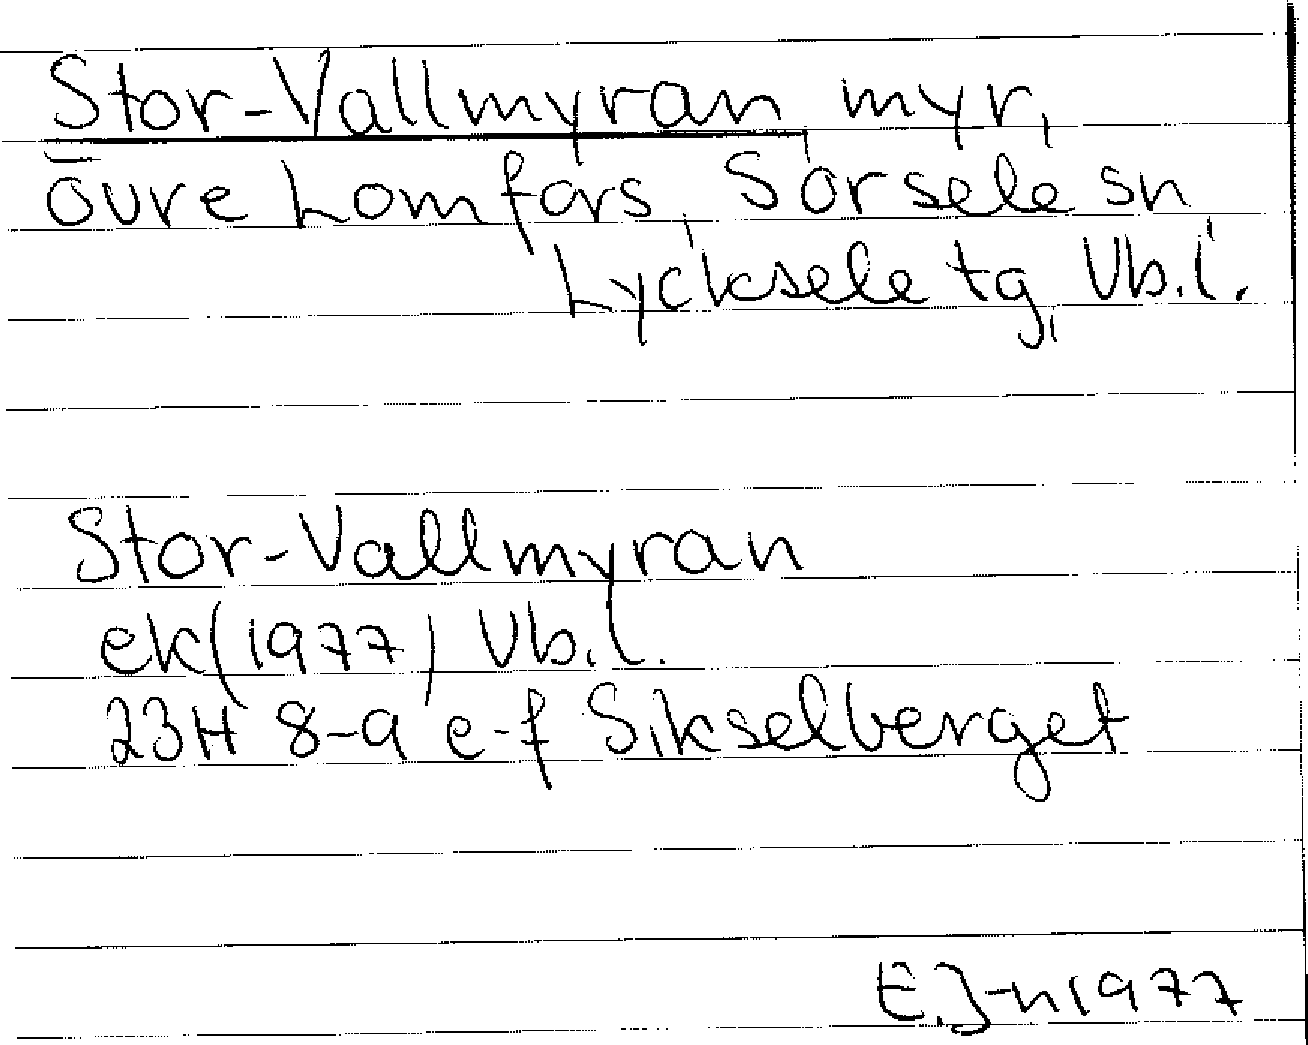 Stor-Vallmyran, myr,
övre Lomfors, Sorsele sn,
Lycksele tg, Vb.l.
Stor-Vallmyran
ek(1977) Vb.l.
23H 8-9 e-f Sikselberget
E.J-n 1977